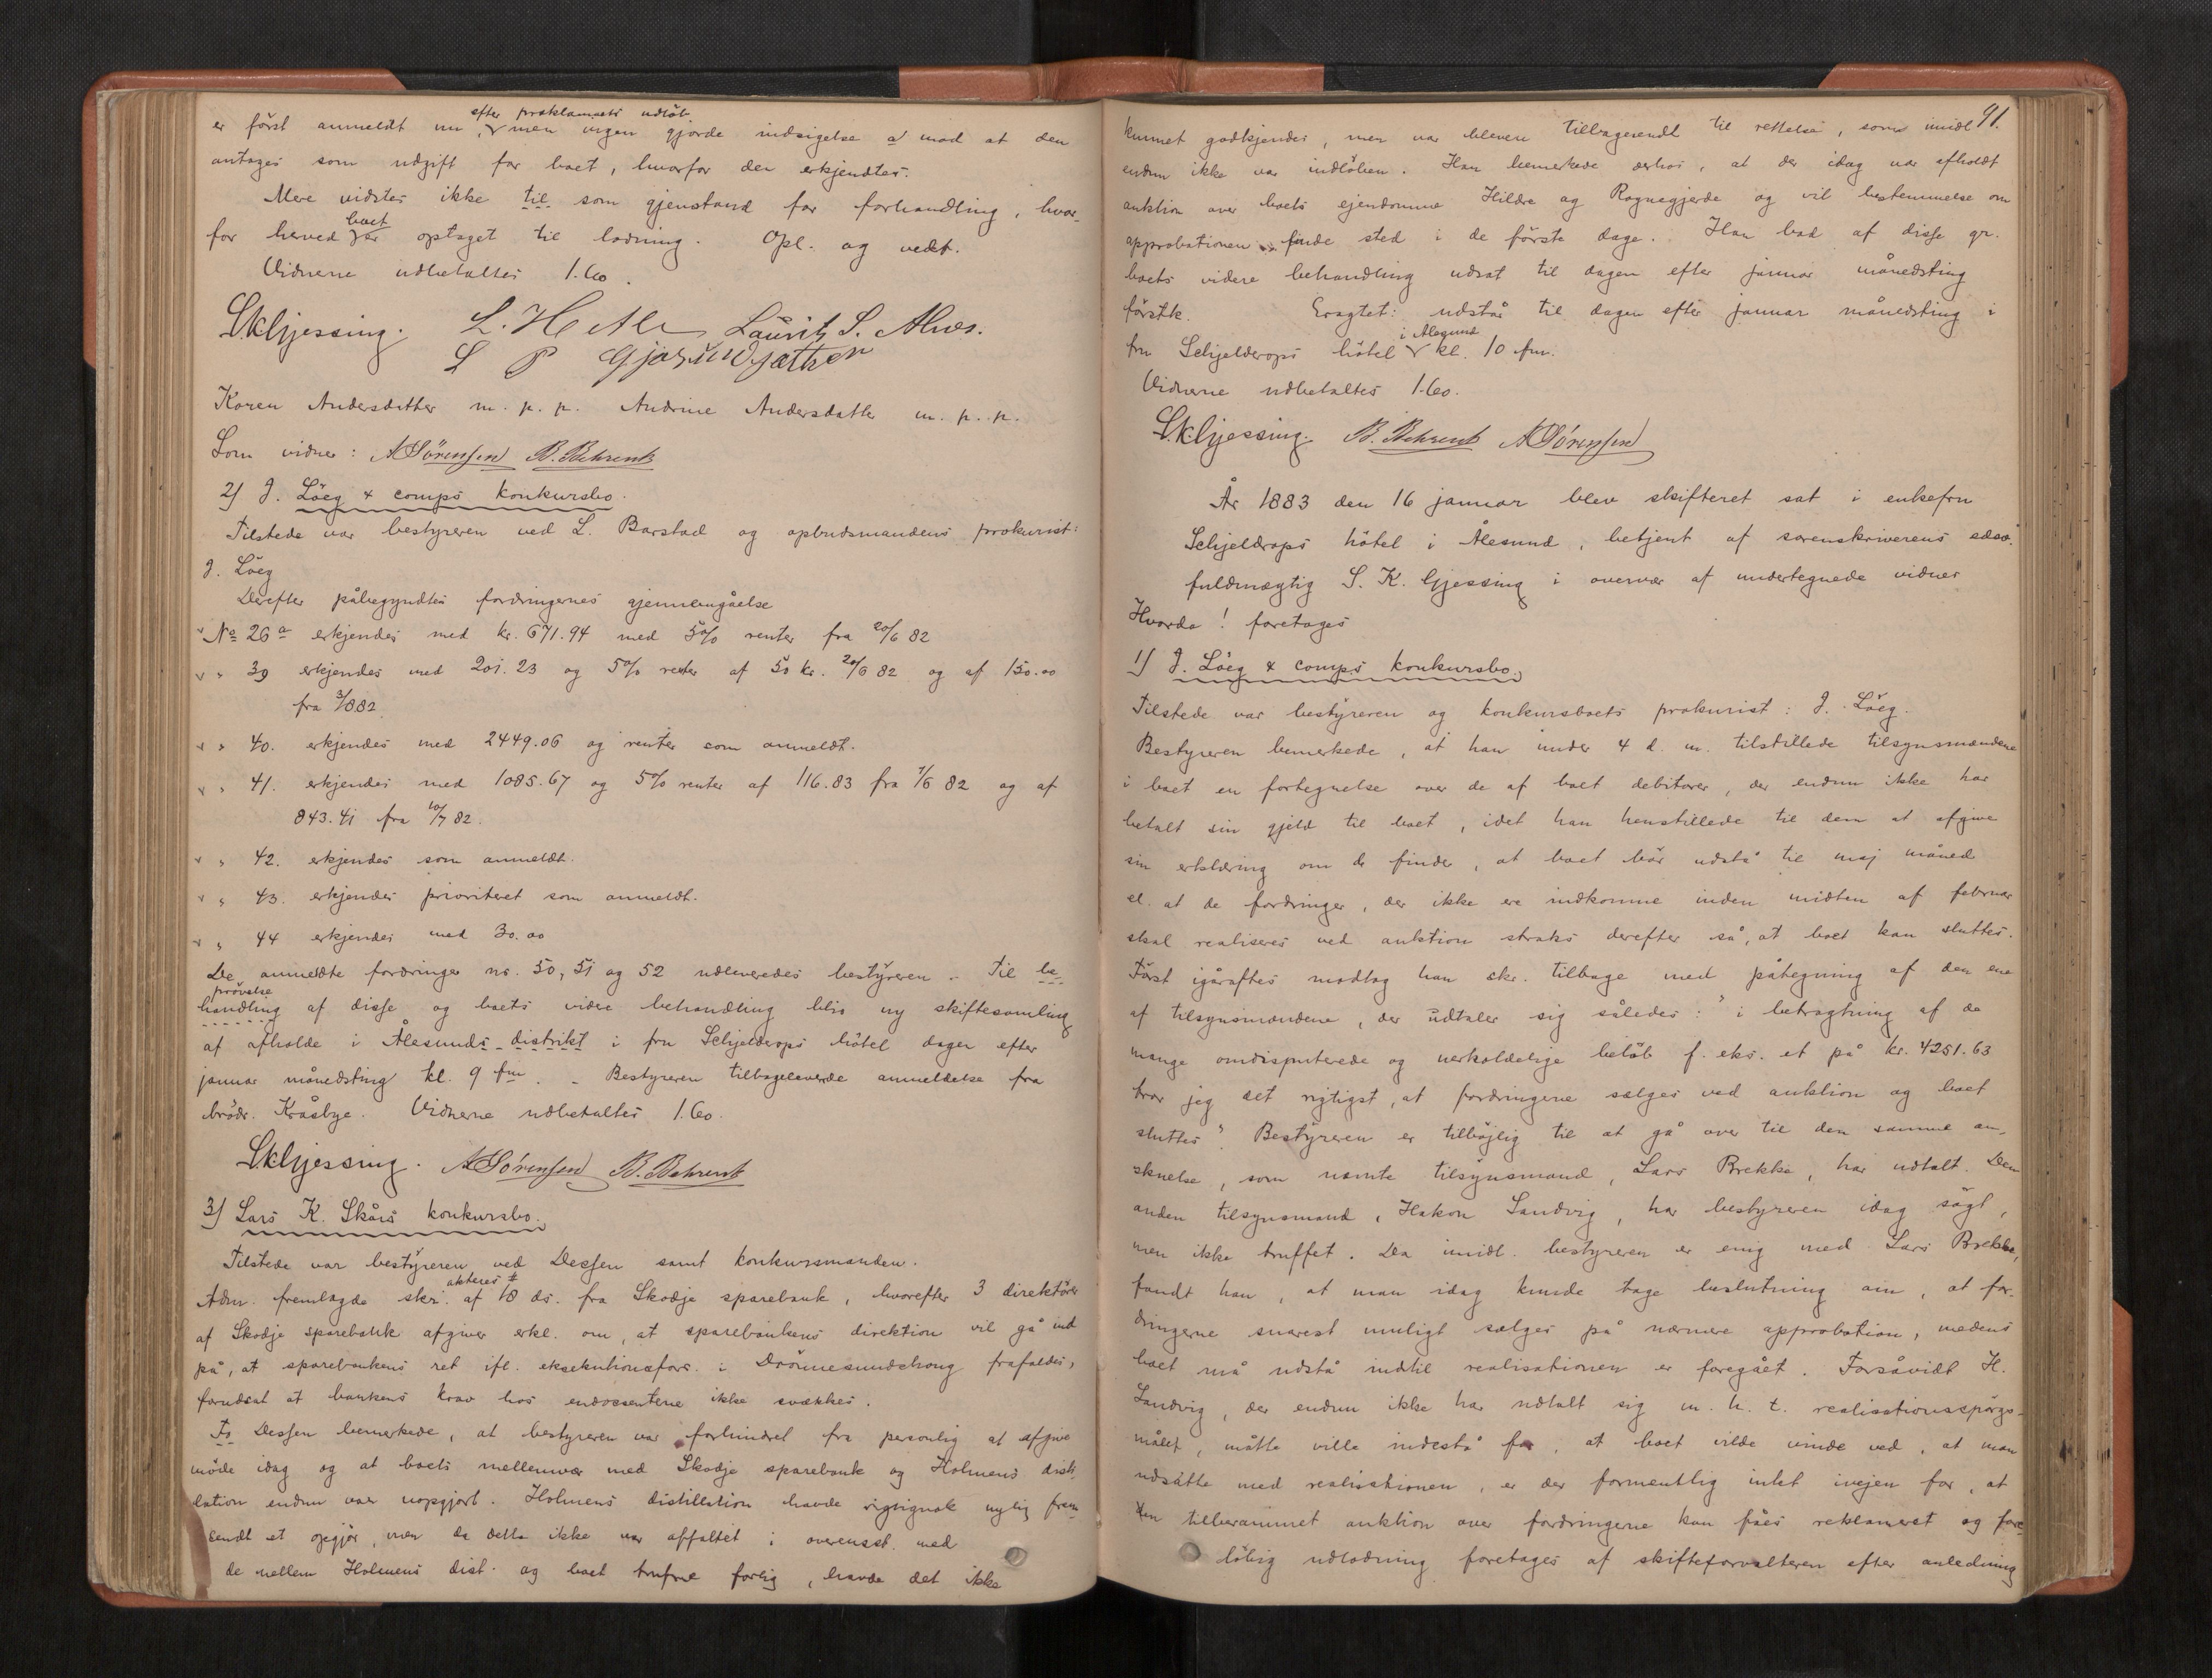 efter proklamaets udløb
er först anmeldt nu, men ingen gjorde indsigelse mod at den
antages som udgift for boet, hvorfor den erkjendtes.
Mere vidstes ikke til som gjenstand for forhandling, hvor-
boet
for herved er optaget til lodning. Opl. og vedt.
Vidnerne udbetaltes 1.60.
SkGjessing. Laurits S. Alnes.
L P Gjøsundsæther
Karen Andersdatter m. p. p. Andrine Andersdatter m. p. p.
Som vidner: ASørensen B. Behrent
2) J. Löeg & comps konkursbo.
Tilstede var bestyreren ved L. Barstad og opbudsmandens prokurist:
J. Löeg
Derefter påbegyndtes fordringernes gjennemgåelse
No 26 a erkjendes med kr. 671.94 med 5% renter fra 20/6 82
" 39 erkjendes med 201.23 og 5% renter af 50 kr. 20/6 82 og af 150.00
fra 3/8 82
" 40. erkjendes med 2449.06 og renter som anmeldt.
" 41. erkjendes med 1085.67 og 5% renter af 116.83 fra 1/6 82 og af
843.41 fra 10/7 82.
" 42. erkjendes som anmeldt.
" 43. erkjendes prioriteret som anmeldt.
" 44 erkjendes med 30.00
De anmeldte fordringer no. 50, 51 og 52 udleveredes bestyreren. - Til be-
prövelse
handling af disse og boets videre behandling blir ny skiftesamling
at afholde i Ålesunds distrikt i fru Schjelderops hôtel dagen efter
januar månedsting kl. 9 fm. - Bestyreren tilbageleverede anmeldelse fra
brödr. Kråsbye. Vidnerne udbetaltes 1.60.
SkGjessing. ASørensen B. Behrent
3) Lars K. Skårs konkursbo.
Tilstede var bestyreren ved Dessen samt konkursmanden.
akteres #
Adm. fremlagde skr. af 18 ds. fra Skodje sparebank, hvorefter 3 direktörer
af Skodje sparebank afgiver erkl. om, at sparebankens direktion vil gå ind
på, at sparebankens ret ifl. eksekutionsforr. i frafaldes,
forudsat at bankens krav hos endossenterne ikke svækkes.
Fs Dessen bemerkede, at bestyreren var forhindret fra personlig at afgive
möde idag og at boets mellemvær med Skodje sparebank og Holmens disti-
lation endnu var uopgjort. Holmens distillation havde rigtignok nylig frem-
sendt et opgjör, men da dette ikke var affattet i overensst. med
de mellem Holmens dist. og boet trufne forlig, havde det ikke
91.
kunnet godkjendes, men var bleven tilbagesendt til rettelse, som imidl.
endnu ikke var indlöben. Han bemerkede derhos, at der idag var afholdt
auktion over boets ejendomme Hildre og Rognegjerde og vil bestemmelse om
approbationen finde sted i de förste dage. Han bad af disse gr.
boets videre behandling udsat til dagen efter januar månedsting
förstk. Eragtet: udstår til dagen efter januar månedsting i
i Ålesund
fru Schjelderops hôtel kl. 10 fm.
Vidnerne udbetaltes 1.60.
SkGjessing. B. Behrent ASørensen
År 1883 den 16 januar blev skifteret sat i enkefru
Schjeldrops hôtel i Ålesund, betjent af sorenskriverens edsv.
fuldmægtig S. K. Gjessing i overvær af undertegnede vidner
Hvorda! foretages
1) J. Löeg & comps konkursbo.
Tilstede var bestyreren og konkursboets prokurist: J. Löeg.
Bestyreren bemerkede, at han under 4 d. m. tilstillede tilsynsmændene
i boet en fortegnelse over de af boet debitorer, der endnu ikke har
betalt sin gjeld til boet, idet han henstillede til dem at afgive
sin erklæring om de finder, at boet bör udstå til maj måned
el. at de fordringer, der ikke ere indkomne inden midten af februar
skal realiseres ved auktion straks derefter så, at boet kan sluttes.
Först igåraftes modtog han skr. tilbage med påtegning af den ene
af tilsynsmændene, der udtaler sig således: "i betragtning af de
mange omdisputerede og uerholdelige belöb f. eks. et på kr. 4251.63
tror jeg det rigtigst, at fordringerne sælges ved auktion og boet
sluttes". Bestyreren er tilböjelig til at gå over til den samme an-
skuelse, som nævnte tilsynsmand, Lars Brekke, har udtalt. Den
anden tilsynsmand, Hakon Sandvig, har bestyreren idag sögt,
men ikke truffet. Da imidl. bestyreren er enig med Lars Brekke,
fandt han, at man idag kunde tage beslutning om, at for-
dringerne snarest muligt sælges på nærmere approbation, medens
boet må udstå indtil realisationen er foregået. Forsåvidt H.
Sandvig, der endnu ikke har udtalt sig m. h. t. realisationsspörgs-
målet, måtte ville indestå for, at boet vilde vinde ved, at man
udsatte med realisationen, er der formentlig intet ivejen for, at
den tilberammet auktion over fordringerne kan fåes reklameret og fore-
löbig udlodning foretages af skifteforvalteren efter anledning